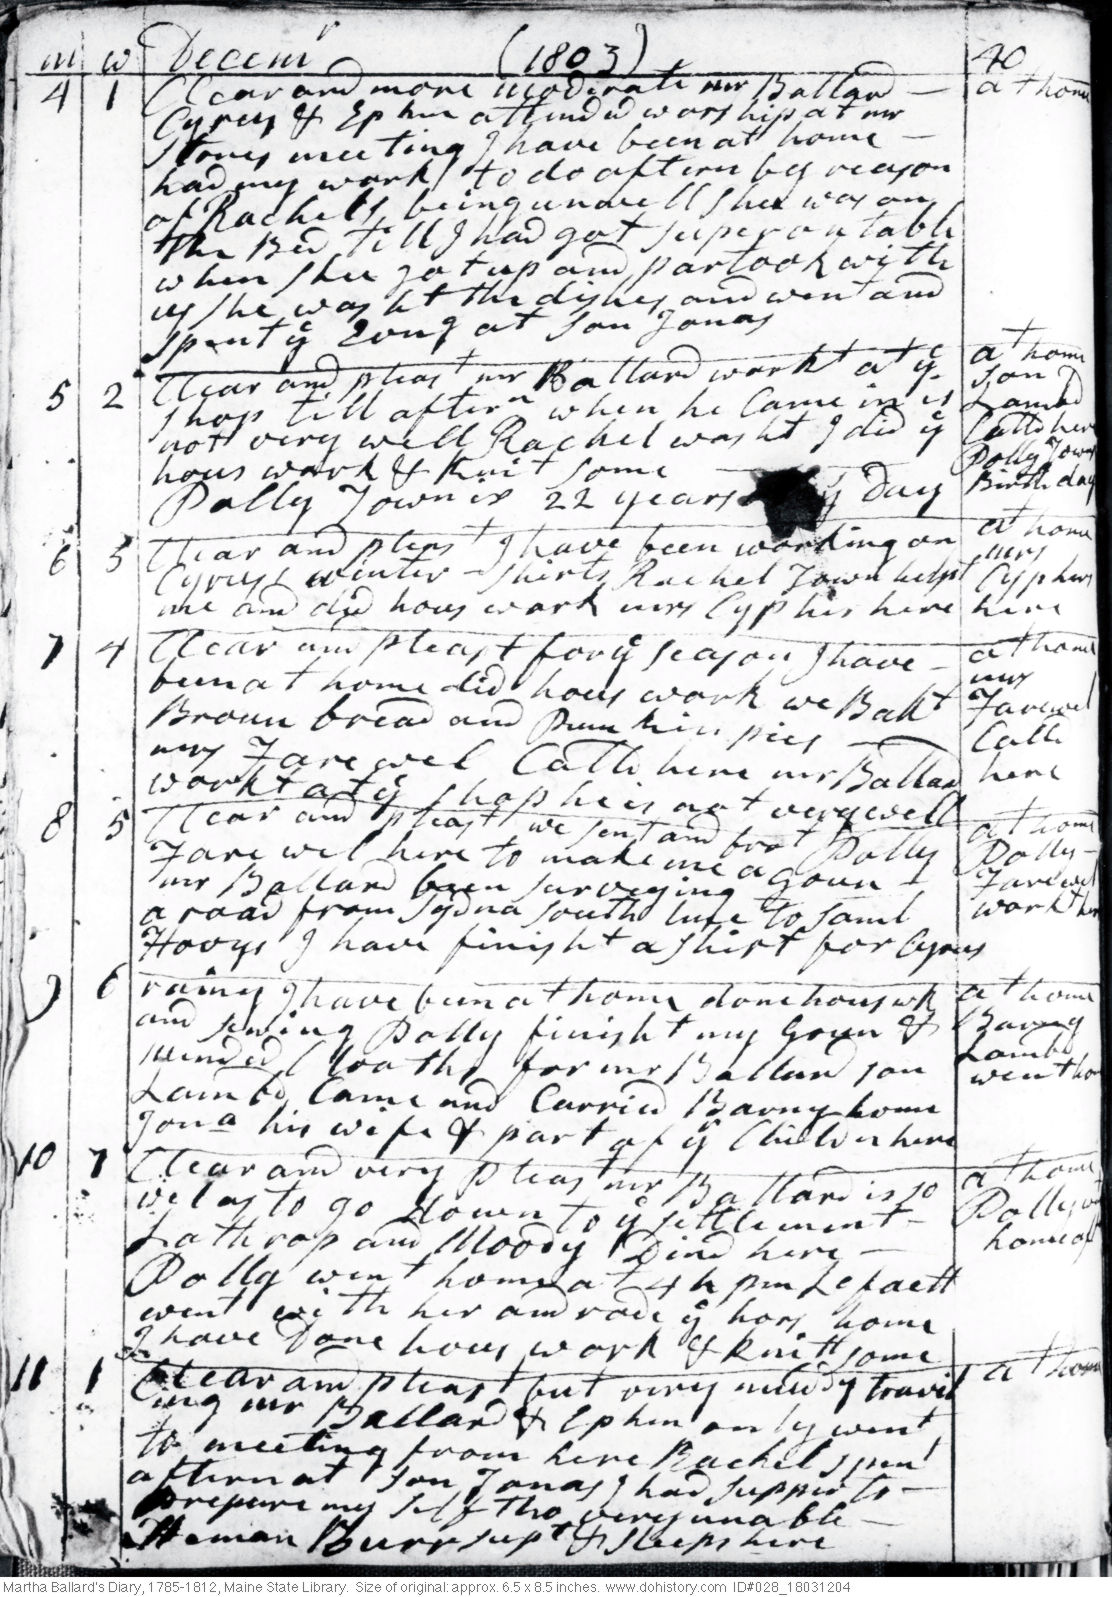 m w Decem r (1803) 40
4 1 Clear and more moderate mr Ballard — at home
Cyrus & Ephm attended worship at mr
Stones meeting I have been at home —
had my work to do aftern by reason
of Rachels being unwell shee was on
the Bed till I had got super on table
when shee got up and partook with
us she washt the dishes and went and
spent ÿ Evng at son Jonas
5 2 Clear and pleast mr Ballard workt at ÿ at home
shop till aftern when he Came in is son Lambd
not very well Rachel washt I did ÿ Calld here
hous work & Knit some — Polly Towns
Polly Town is 22 years ÿ Day Birth day
6 3 Clear and pleast I have been working on at home
Cyruss winter shirts Rachel Town helpt mrs Cyphers
me and did hous work mrs Cyphers here here
7 4 Clear and pleast for ÿ season I have — at home
been at home did hous work we Bakt mrs
Broun bread and Pumkin pies — Farewel
mrs Farewel Calld here mr Ballard Calld
workt at ÿ shop he is not very well here
8 5 Clear and pleast we sent and brot Polly at home
Farewel here to make me a Goun — Polly
mr Ballard been surveying Farewel
a road from Sydna south line to Saml workt her
Hovys I have finisht a shirt for Cyrus
9 6 rainy I have been at home done hous wk at home
and sewing Polly finisht my Goun & Barny
mended Cloaths for mr Ballard son Lambd
Lambd Came and Carried Barny home went ho
Jona his wife & part of ÿ Childn here
10 7 Clear and very pleast mr Ballard is so at home
wel as to go Down to ÿ settlement — Polly
Lathrop and Moody Dind here — home
Polly went home at 4 h pm Lefaett
went with her and rode ÿ hors home
I have Done hous work & Knitt some
11 1 Clear and pleast but very mudy travil at hom
ing mr Ballard & Ephm only went
to meeting from here Rachel spent
aftern at son Jonas I had supper to —
prepare my self tho very unable —
Heman Burr supt & sleeps here
Martha Ballard's Diary, 1785-1812, Maine State Library. Size of original: approx. 6.5 x 8.5 inches. www.dohistory.com ID#028_18031204